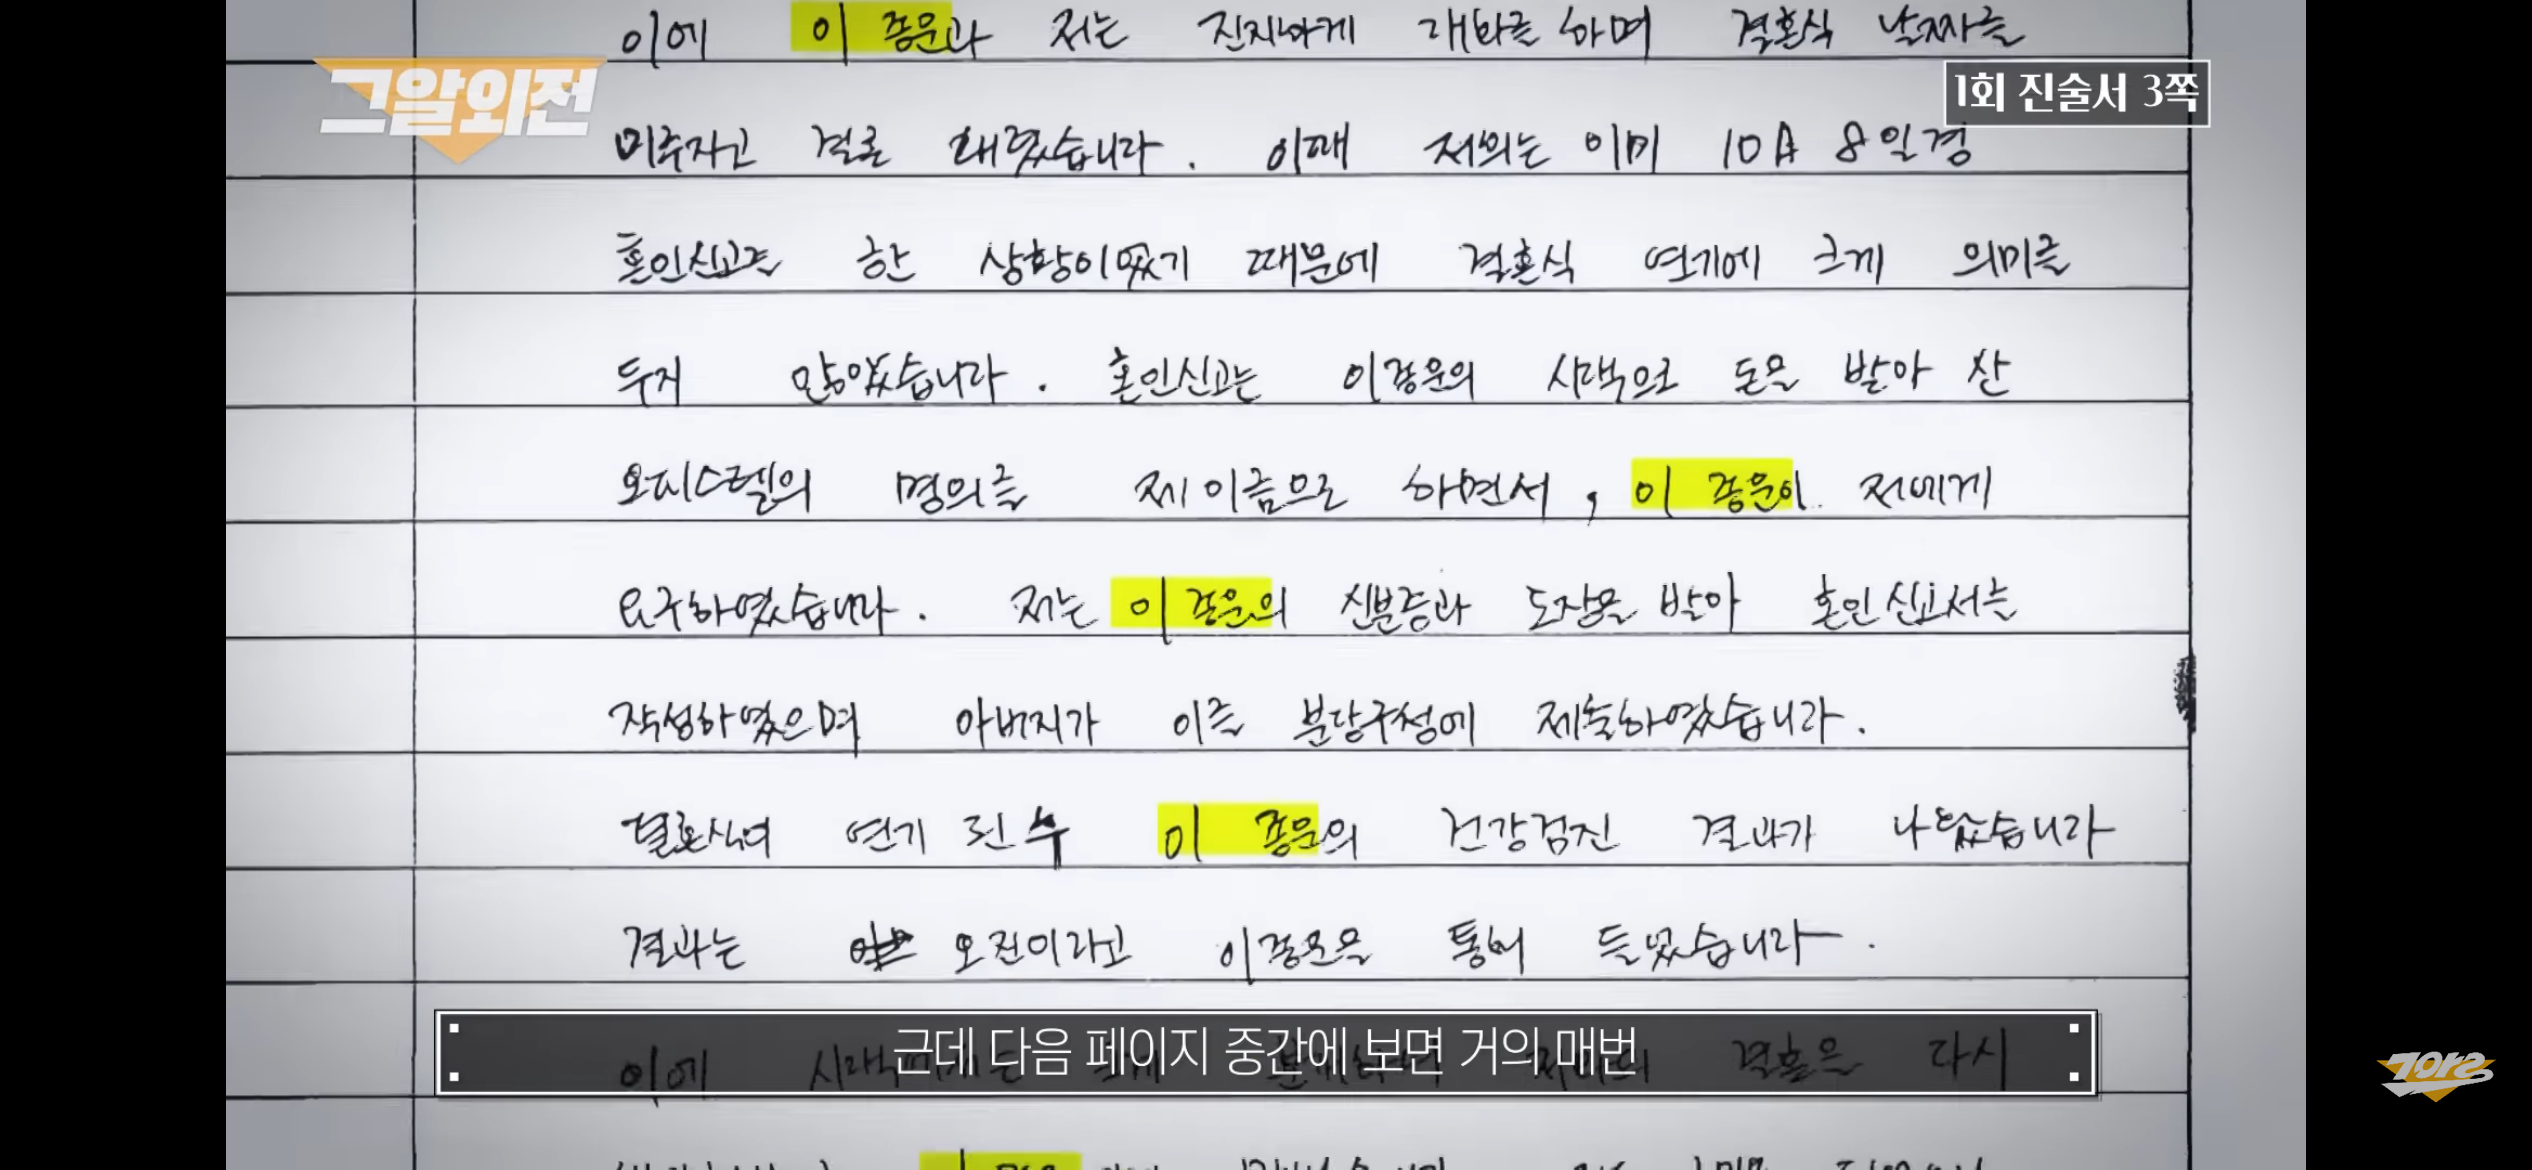 이에 이종운과 저는 진지하게 대화를 하며 결혼식 날짜를
그알외전
1회 진술서 3쪽
미루자고 결론 내렸습니다. 이때 저희는 이미 10月 8일경
혼인신고를 한 상황이었기 때문에 결혼식 연기에 크게 의미를
두지 않았습니다. 혼인신고는 이종운의 시댁으로 돈을 받아 산
오피스텔의 명의를 제 이름으로 하면서, 이종운이 저에게
요구하였습니다. 저는 이종운의 신분증과 도장을 받아 혼인신고서는
작성하였으며 아버지가 이를 분당구청에 제출하였습니다.
결혼식이 연기 된 후 이종운의 건강검진 결과가 나왔습니다
결과는 오진이라고 이종운을 통해 들었습니다.
근데 다음 페이지 중간에 보면 거의 매번
이에 결혼은 다시
그알